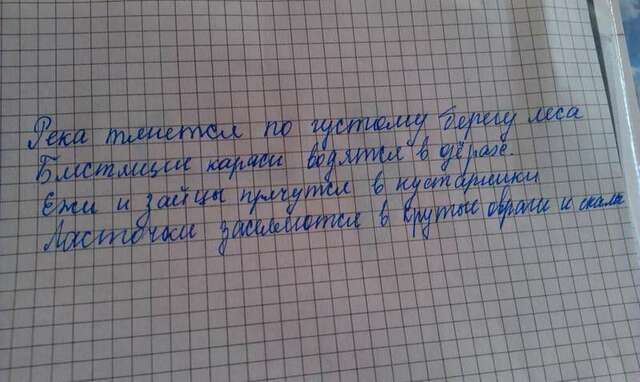 Река тянется по густому берегу леса
Блистящие караси водятся в
Ежи и зайцы прячутся в кустарники
Ласточки заселяются в крутые овраги и скалы